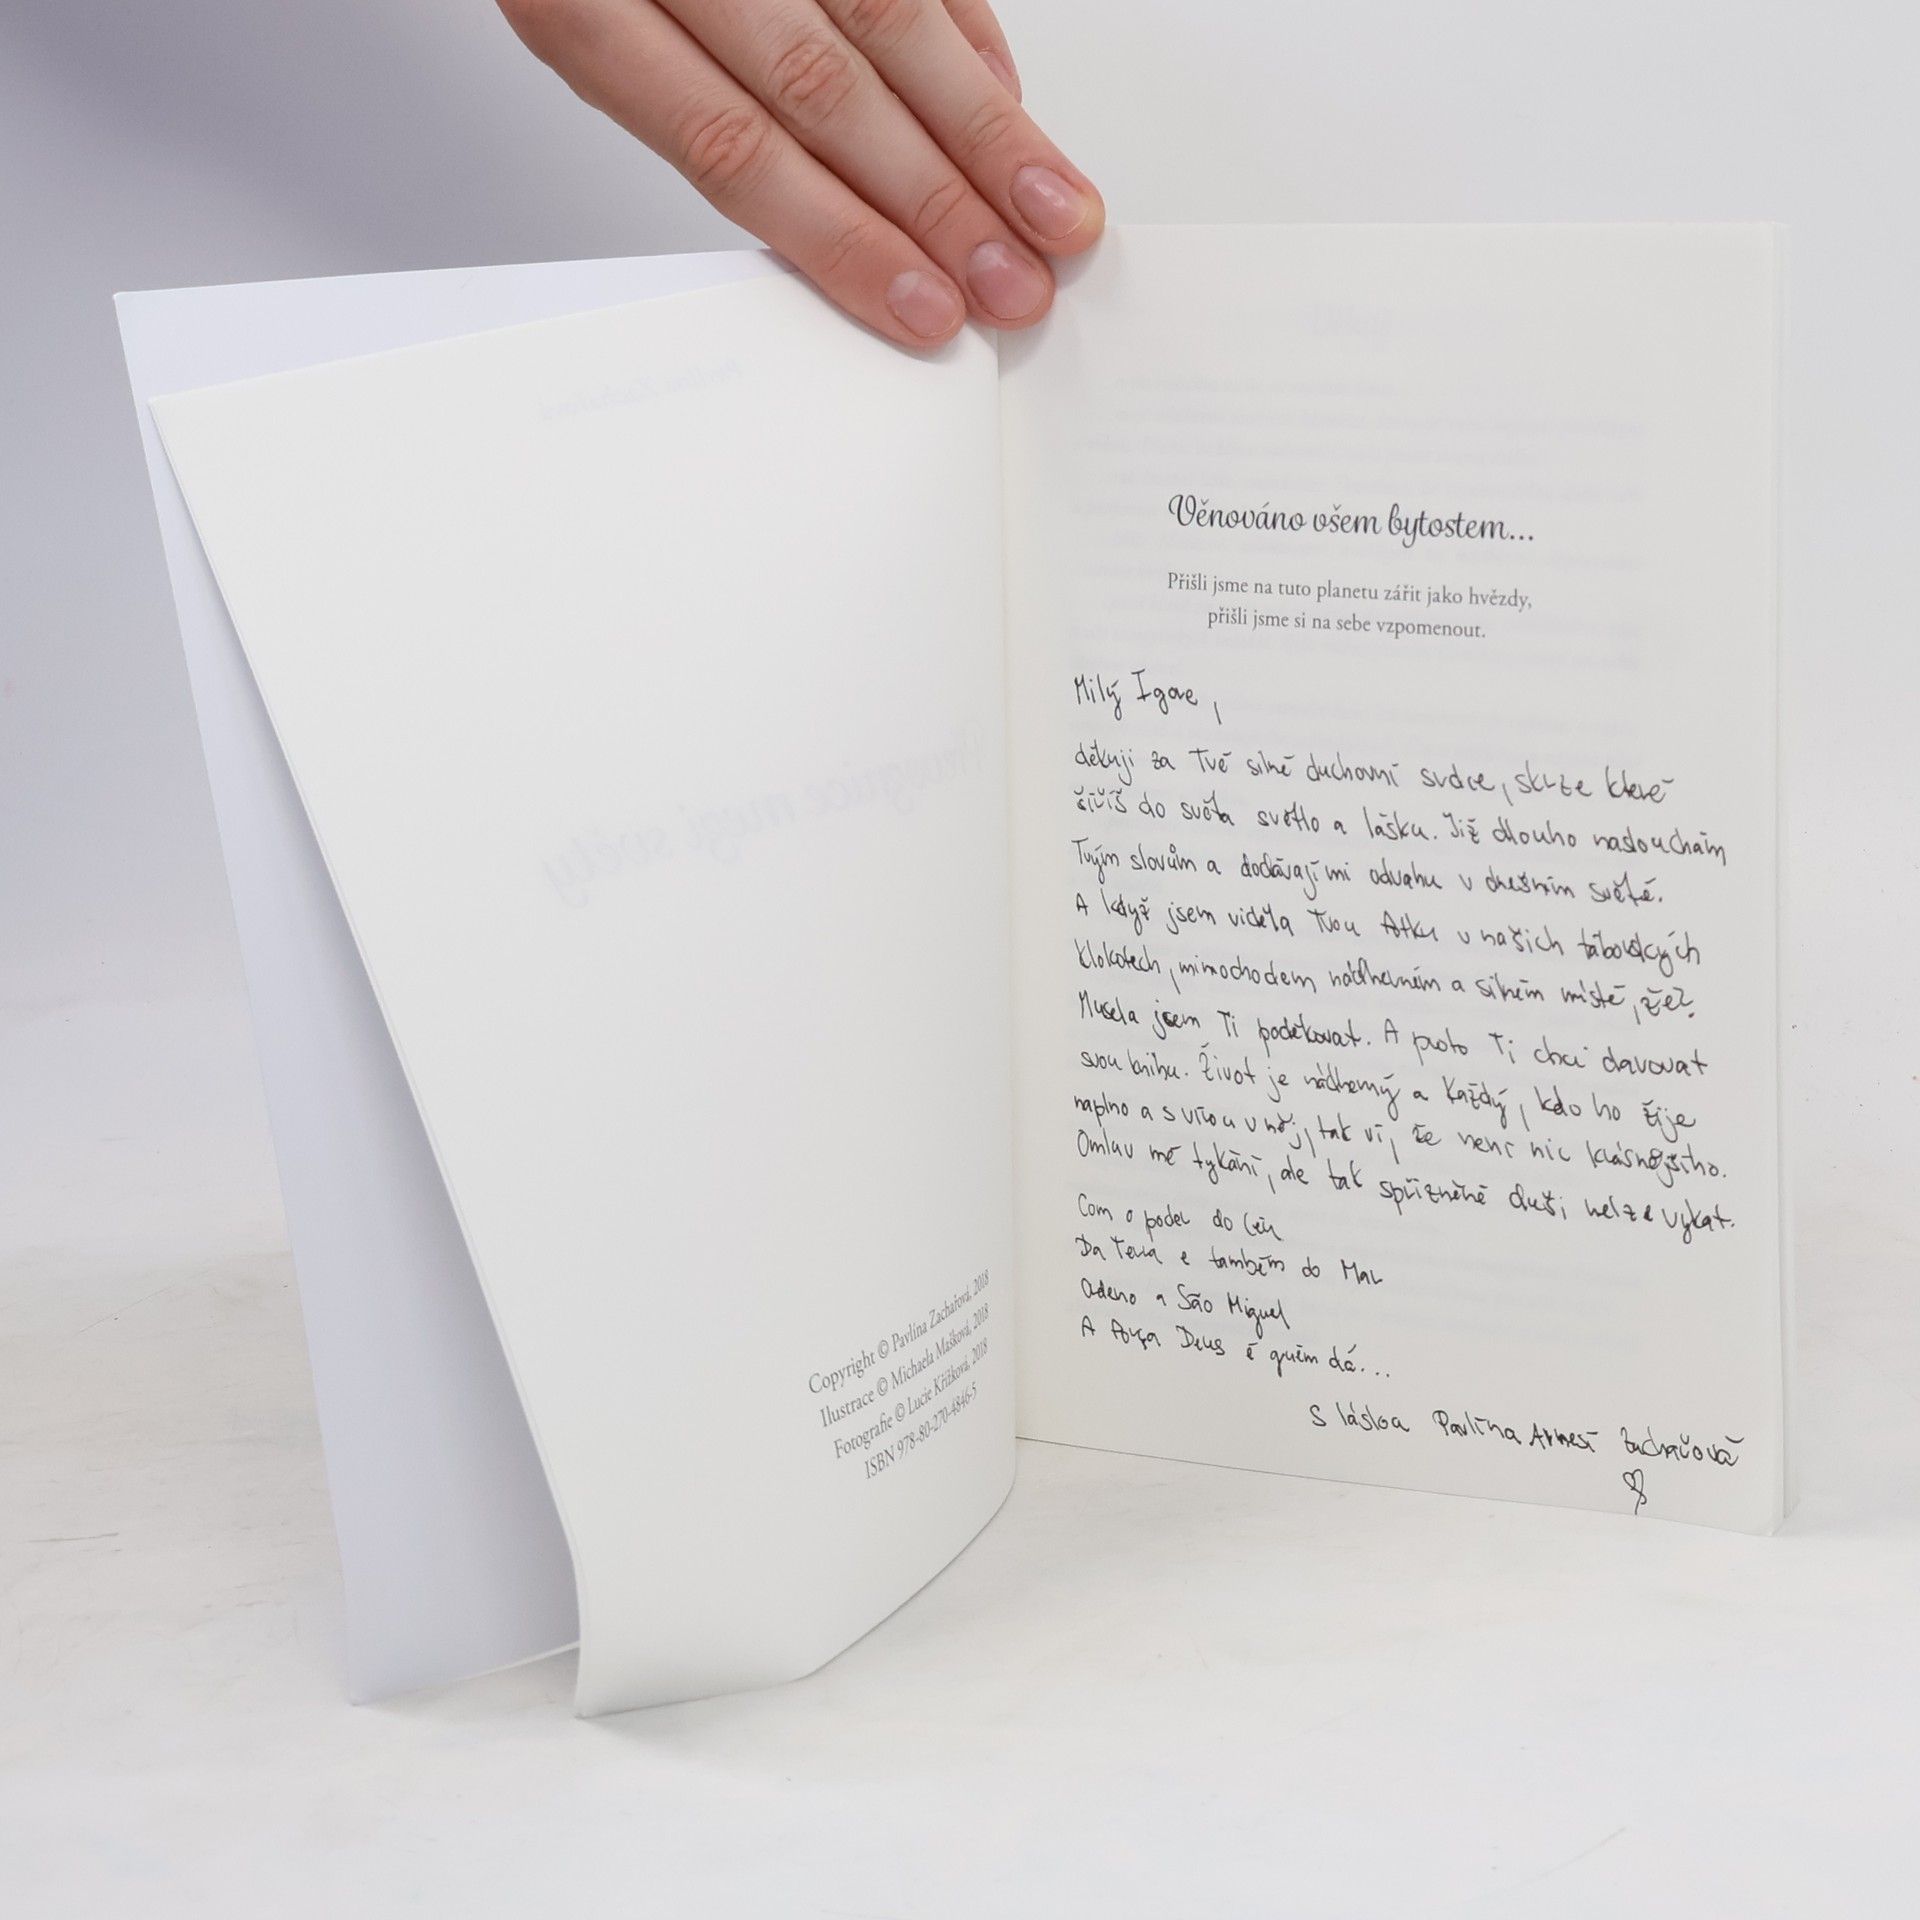 Copyright © Pavlína Zachařová, 2018
Ilustrace © Michaela Mašková, 2018
Fotografie © Lucie Křížková, 2018
ISBN 978-80-270-4846-5
Věnováno všem bytostem...
Přišli jsme na tuto planetu zářit jako hvězdy,
přišli jsme si na sebe vzpomenout.
Milý Igore,
děkuji za Tvé silné duchovní srdce, skrze které
šíříš do světa světlo a lásku. Již dlouho naslouchám
Tvým slovům a dodávají mi odvahu v dnešním světě.
A když jsem viděla Tvou fotku v našich táborských
Klokotech, mimochodem nádherném a silném místě, že?
Musela jsem Ti poděkovat. A proto Ti chci darovat
svou knihu. Život je nádherný a každý, kdo ho žije
naplno a s vírou v něj, tak ví, že není nic krásnějšího.
Omluv mé tykání, ale tak spřízněné duši nelze vykat.
Com o poder do Céu
Da Terra e também do Mar
Adeno a São Miguel
A Força Deus é quém dá...
S láskou Pavlína Zachařová